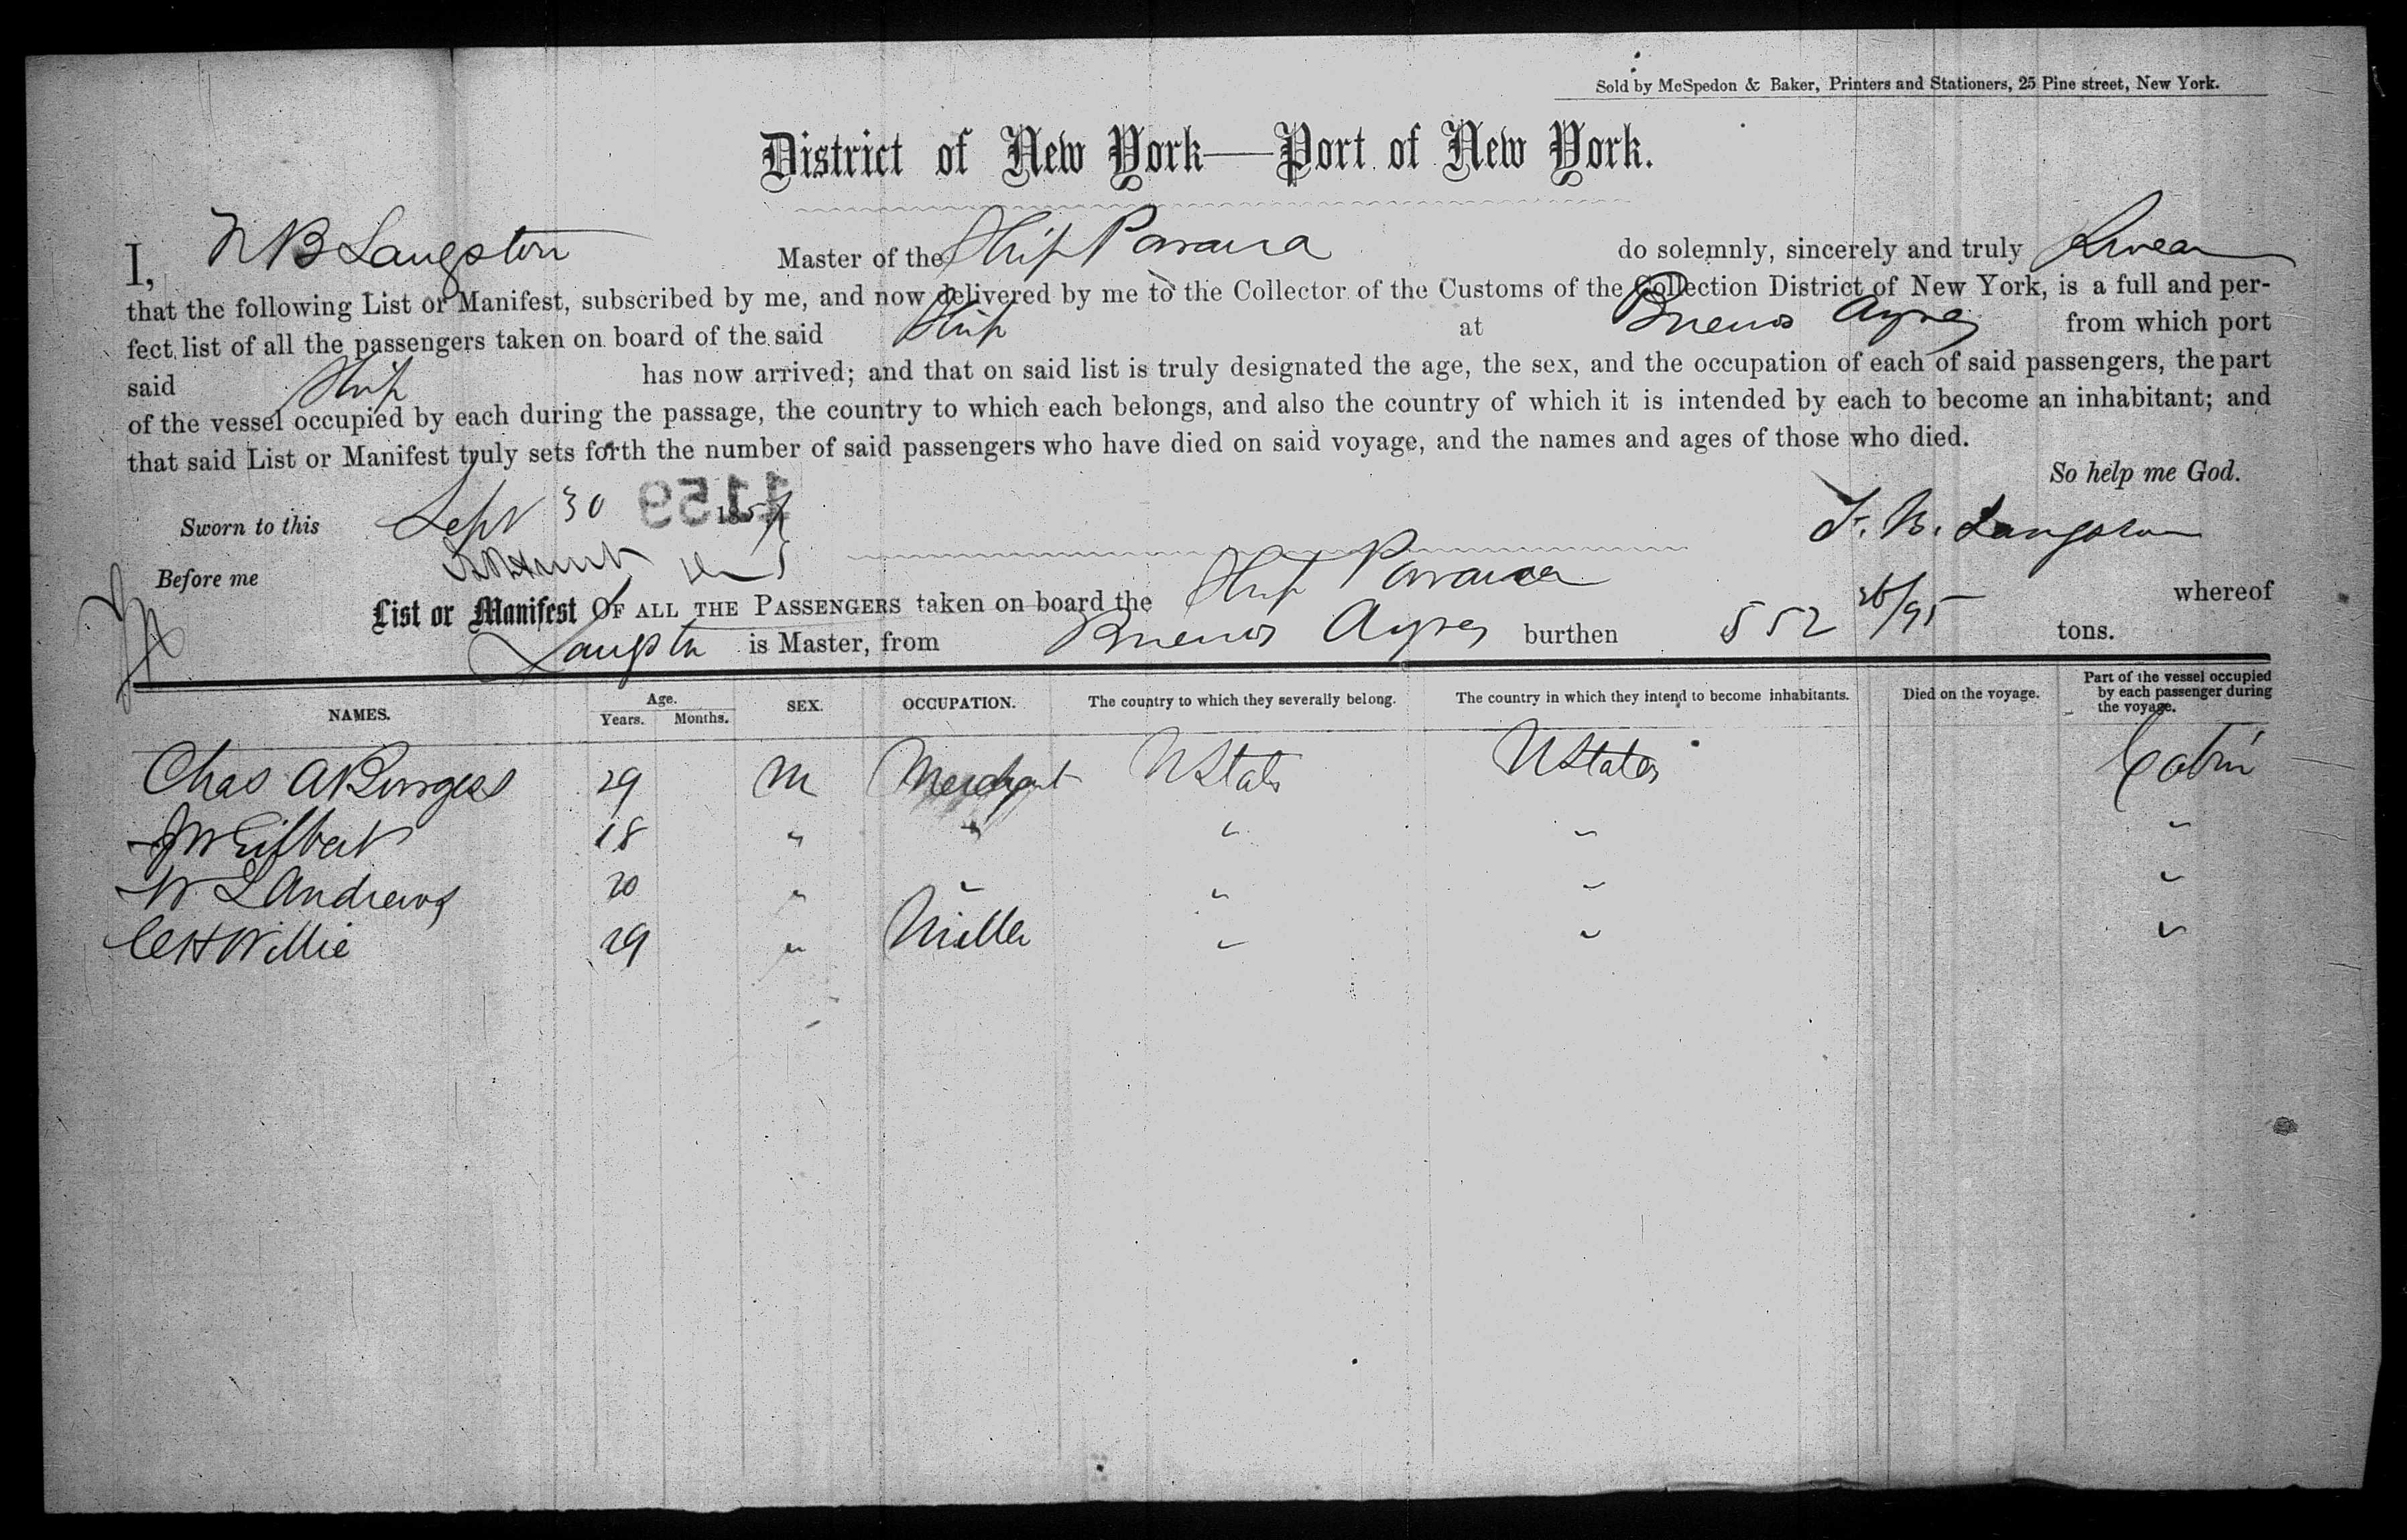 Sold by McSpedon & Baker, Printers and Stationers, 25 Pine street, New York.
District of New York—Port of New York.
I, B Langston Master of the Ship Parana do solemnly, sincerely and truly Swear
that the following List or Manifest, subscribed by me, and now delivered by me to the Collector of the Customs of the Collection District of New York, is a full and per-
fect list of all the passengers taken on board of the said Ship at Buenos Ayres from which port
said Ship has now arrived; and that on said list is truly designated the age, the sex, and the occupation of each of said passengers, the part
of the vessel occupied by each during the passage, the country to which each belongs, and also the country of which it is intended by each to become an inhabitant; and
that said List or Manifest truly sets forth the number of said passengers who have died on said voyage, and the names and ages of those who died.
So help me God.
Sworn to this Sept 30 1159
Langston
Before me
List or Manifest OF ALL THE PASSENGERS taken on board the Ship Parana whereof
Langston is Master, from Buenos Ayres burthen 552 26/95 tons.
NAMES. Age. Years. Months. SEX. OCCUPATION. The country to which they severally belong. The country in which they intend to become inhabitants. Died on the voyage. Part of the vessel occupied by each passenger during the voyage.
Chas A Burgess 29 M Merchant U States U States Cabin
J W Gilbert 18 " " " " "
W L Andrews 20 " " " " "
C H Willie 29 " Miller " " "